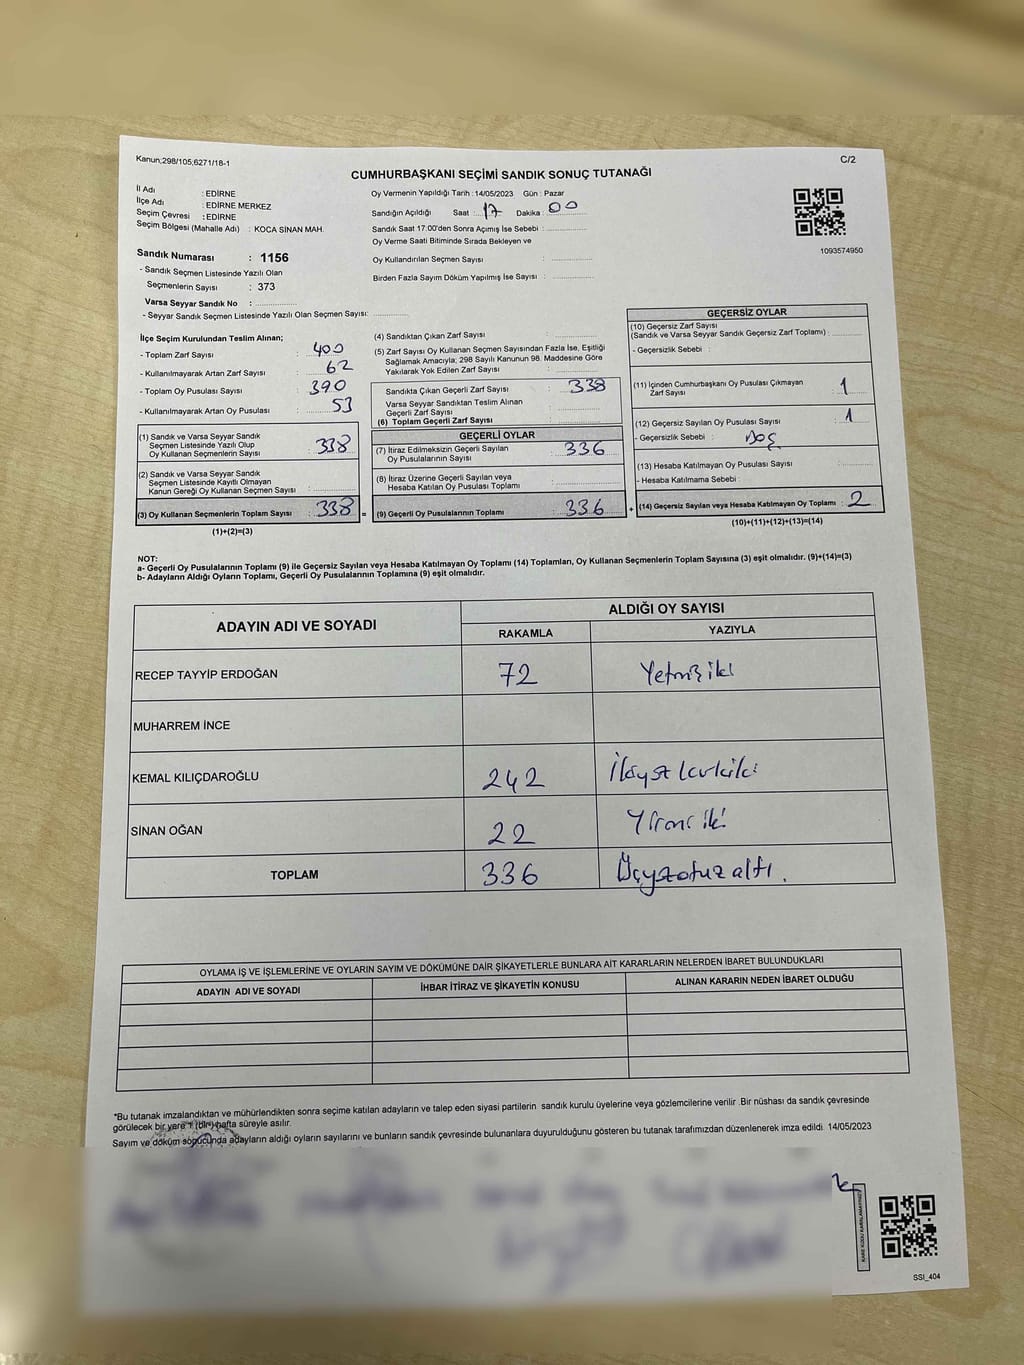 Kanun;298/105;6271/18-1
C/2
CUMHURBAŞKANI SEÇİMİ SANDIK SONUÇ TUTANAĞI
İl Adı : EDİRNE
İlçe Adı : EDİRNE MERKEZ
Seçim Çevresi : EDİRNE
Seçim Bölgesi (Mahalle Adı) : KOCA SİNAN MAH.
Oy Vermenin Yapıldığı Tarih : 14/05/2023 Gün : Pazar
Sandığın Açıldığı Saat : 17 Dakika : 00
Sandık Saat 17.00'den Sonra Açılmış İse Sebebi :
Oy Verme Saati Bitiminde Sırada Bekleyen ve
Oy Kullandırılan Seçmen Sayısı :
Birden Fazla Sayım Döküm Yapılmış İse Sayısı :
1093574950
Sandık Numarası : 1156
- Sandık Seçmen Listesinde Yazılı Olan
Seçmenlerin Sayısı : 373
Varsa Seyyar Sandık No :
- Seyyar Sandık Seçmen Listesinde Yazılı Olan Seçmen Sayısı:
İlçe Seçim Kurulundan Teslim Alınan;
- Toplam Zarf Sayısı : 400
- Kullanılmayarak Artan Zarf Sayısı : 62
- Toplam Oy Pusulası Sayısı : 390
- Kullanılmayarak Artan Oy Pusulası : 53
(1) Sandık ve Varsa Seyyar Sandık
Seçmen Listesinde Yazılı Olup
Oy Kullanan Seçmenlerin Sayısı : 338
(2) Sandık ve Varsa Seyyar Sandık
Seçmen Listesinde Kayıtlı Olmayan
Kanun Gereği Oy Kullanan Seçmen Sayısı :
(3) Oy Kullanan Seçmenlerin Toplam Sayısı : 338 =
(1)+(2)=(3)
(4) Sandıktan Çıkan Zarf Sayısı :
(5) Zarf Sayısı Oy Kullanan Seçmen Sayısından Fazla İse, Eşitliği
Sağlamak Amacıyla; 298 Sayılı Kanunun 98. Maddesine Göre
Yakılarak Yok Edilen Zarf Sayısı :
Sandıkta Çıkan Geçerli Zarf Sayısı : 338
Varsa Seyyar Sandıktan Teslim Alınan
Geçerli Zarf Sayısı :
(6) Toplam Geçerli Zarf Sayısı :
GEÇERLİ OYLAR
(7) İtiraz Edilmeksizin Geçerli Sayılan
Oy Pusulalarının Sayısı : 336
(8) İtiraz Üzerine Geçerli Sayılan veya
Hesaba Katılan Oy Pusulası Toplamı :
(9) Geçerli Oy Pusulalarının Toplamı : 336 +
GEÇERSİZ OYLAR
(10) Geçersiz Zarf Sayısı
(Sandık ve Varsa Seyyar Sandık Geçersiz Zarf Toplamı) :
- Geçersizlik Sebebi :
(11) İçinden Cumhurbaşkanı Oy Pusulası Çıkmayan
Zarf Sayısı : 1
(12) Geçersiz Sayılan Oy Pusulası Sayısı : 1
- Geçersizlik Sebebi : Boş
(13) Hesaba Katılmayan Oy Pusulası Sayısı :
- Hesaba Katılmama Sebebi :
(14) Geçersiz Sayılan veya Hesaba Katılmayan Oy Toplamı : 2
(10)+(11)+(12)+(13)=(14)
NOT:
a- Geçerli Oy Pusulalarının Toplamı (9) ile Geçersiz Sayılan veya Hesaba Katılmayan Oy Toplamı (14) Toplamları, Oy Kullanan Seçmenlerin Toplam Sayısına (3) eşit olmalıdır. (9)+(14)=(3)
b- Adayların Aldığı Oyların Toplamı, Geçerli Oy Pusulalarının Toplamına (9) eşit olmalıdır.
ADAYIN ADI VE SOYADI
ALDIĞI OY SAYISI
RAKAMLA YAZIYLA
RECEP TAYYİP ERDOĞAN 72 Yetmişiki
MUHARREM İNCE
KEMAL KILIÇDAROĞLU 242
SİNAN OĞAN 22 Yirmi iki
TOPLAM 336 Üçyüzotuzaltı.
OYLAMA İŞ VE İŞLEMLERİNE VE OYLARIN SAYIM VE DÖKÜMÜNE DAİR ŞİKAYETLERLE BUNLARA AİT KARARLARIN NELERDEN İBARET BULUNDUKLARI
ADAYIN ADI VE SOYADI İHBAR İTİRAZ VE ŞİKAYETİN KONUSU ALINAN KARARIN NEDEN İBARET OLDUĞU
*Bu tutanak imzalandıktan ve mühürlendikten sonra seçime katılan adayların ve talep eden siyasi partilerin sandık kurulu üyelerine veya gözlemcilerine verilir .Bir nüshası da sandık çevresinde
görülecek bir yere 1 (bir) hafta süreyle asılır.
Sayım ve döküm sonucunda adayların aldığı oyların sayılarını ve bunların sandık çevresinde bulunanlara duyurulduğunu gösteren bu tutanak tarafımızdan düzenlenerek imza edildi. 14/05/2023
KARE KODU KARALAMAYINIZ
SSI_404